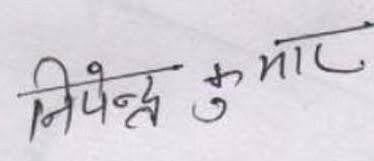 निपेन्द्र कुमार